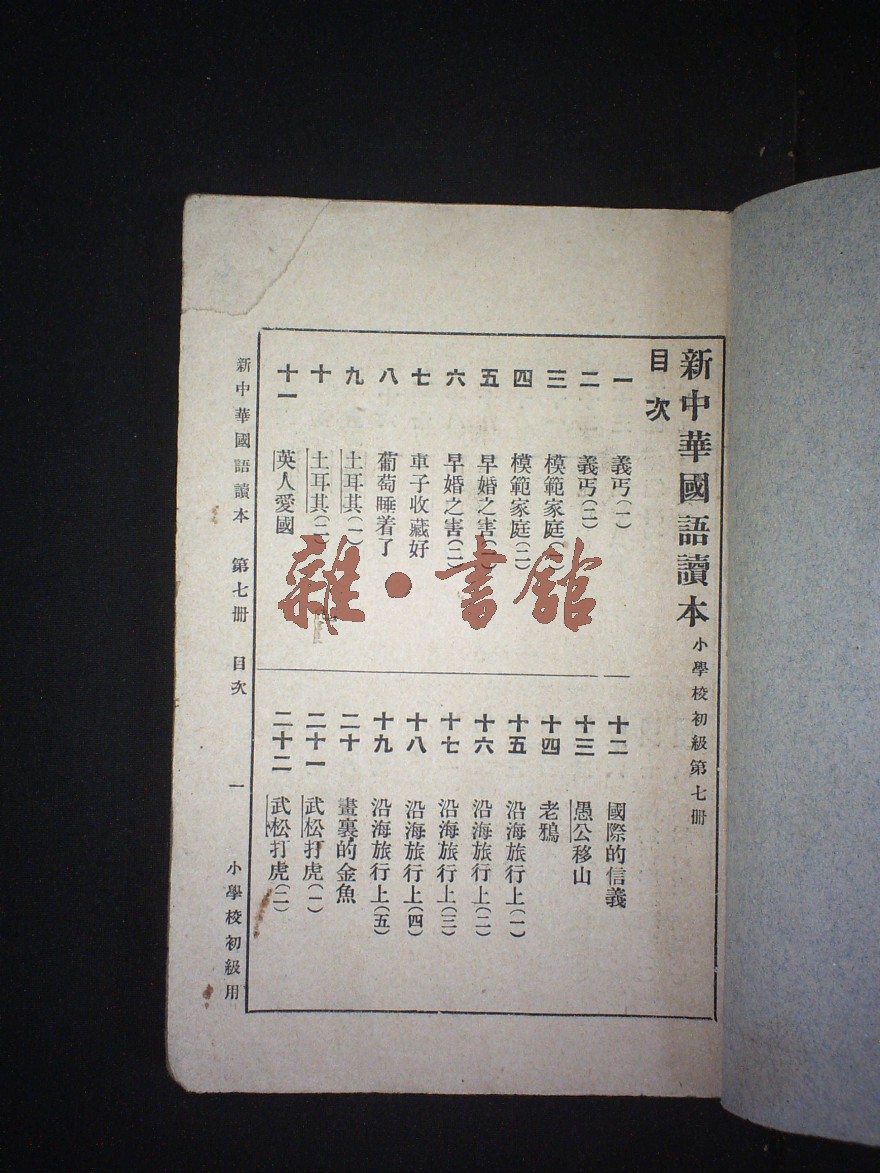 新中華國語讀本 小學校初級第七冊
目次
一 義丐(一)
二 義丐(二)
三 模範家庭(一)
四 模範家庭(二)
五 早婚之害(一)
六 早婚之害(二)
七 車子收藏好
八 葡萄睡着了
九 土耳其(一)
十 土耳其(二)
十一 英人愛國
十二 國際的信義
十三 愚公移山
十四 老鴉
十五 沿海旅行上(一)
十六 沿海旅行上(二)
十七 沿海旅行上(三)
十八 沿海旅行上(四)
十九 沿海旅行上(五)
二十 畫裏的金魚
二十一 武松打虎(一)
二十二 武松打虎(二)
新中華國語讀本 第七冊 目次 一 小學校初級用
雜·書館